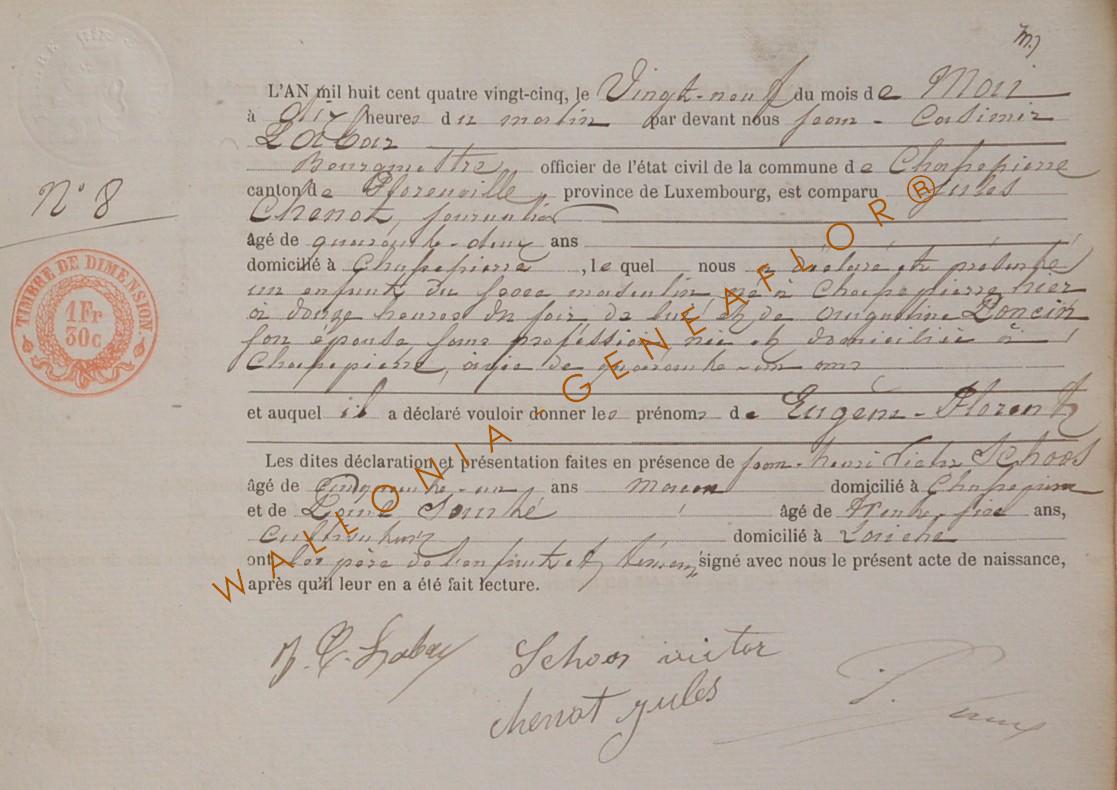 m)
L'AN mil huit cent quatre vingt-cinq, le Vingt-neuf du mois de Mai
à dix heures du matin par devant nous jean - Casimir
Labar
Bourgmestre officier de l'état civil de la commune de Chassepierre
canton de Florenville, province de Luxembourg, est comparu Jules
Chenot, journalier
âgé de quarante-deux ans
domicilié à Chassepierre, lequel nous a déclaré et présenté
un enfant du sexe masculin né à Chassepierre hier
à douze heures du soir de lui et de Augustine Poncin
son épouse sans profession née et domiciliée à
Chassepierre, âgée de quarante-un ans
et auquel il a déclaré vouloir donner les prénoms de Eugène - Florent
Les dites déclaration et présentation faites en présence de jean-henri Victor Schoos
âgé de cinquante-un ans maçon domicilié à Chassepierre
et de âgé de trente-six ans,
cultivateur domicilié à Laiche
ont les père de l'enfant et témoins signé avec nous le présent acte de naissance,
après qu'il leur en a été fait lecture.
N° 8
TIMBRE DE DIMENSION.
1 Fr
30c
WALLONIA - GENEAFLOR®
J. C. Labar
Schoos victor
chenot jules